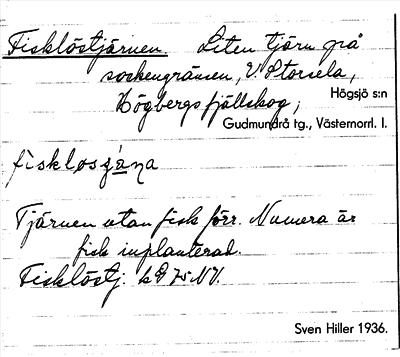 Fisklöstjärnen. Liten tjärn på
sockengränsen, V. Storsela,
Högsjö s:n
Högbergs fjällskog;
Gudmundrå tg., Västernorrl. l.
Tjärnen utan fisk förr. Numera är
fisk inplanterad.
Fisklöstj.
Sven Hiller 1936.